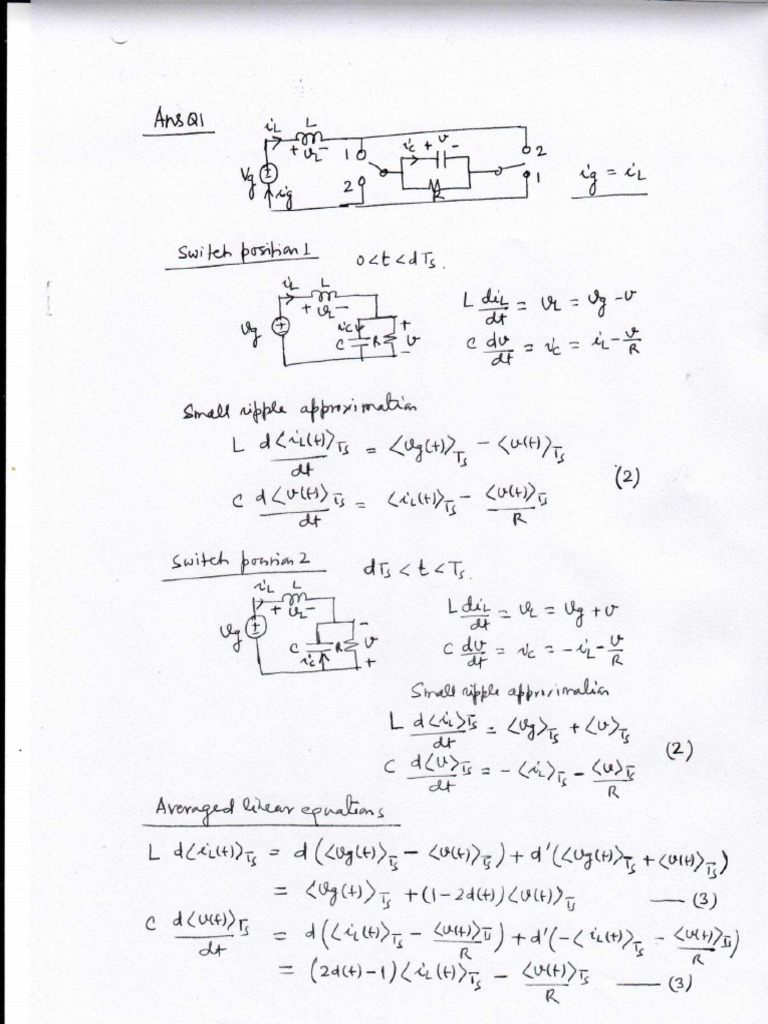 Ans Q1
iL L
+ vL -
Vg
ig
1
2
ic + v -
R
2
1
ig = iL
Switch position 1 0<t<dTs.
iL L
+ vL -
vg
ic
C R
+
v
-
L diL/dt = vL = vg - v
C dv/dt = ic = iL - v/R
Small ripple approximation
L d<iL(t)>Ts/dt = <vg(t)>Ts - <v(t)>Ts
(2)
C d<v(t)>Ts/dt = <iL(t)>Ts - <v(t)>Ts/R
Switch position 2 dTs < t < Ts.
iL L
+ vL -
vg
C R
ic
-
v
+
L diL/dt = vL = vg + v
C dv/dt = ic = -iL - v/R
Small ripple approximation
L d<iL>Ts/dt = <vg>Ts + <v>Ts
(2)
C d<v>Ts/dt = -<iL>Ts - <v>Ts/R
Averaged linear equations
L d<iL(t)>Ts = d(<vg(t)>Ts - <v(t)>Ts) + d'(<vg(t)>Ts + <v(t)>Ts)
= <vg(t)>Ts + (1-2d(t))<v(t)>Ts — (3)
C d<v(t)>Ts/dt = d(<iL(t)>Ts - <v(t)>Ts/R) + d'(-<iL(t)>Ts - <v(t)>Ts/R)
= (2d(t)-1)<iL(t)>Ts - <v(t)>Ts/R — (3)